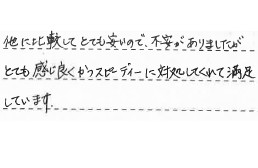 他に比較してとても安いので、不安がありましたが
とても感じ良くかつスピーディーに対処してくれて満足
しています